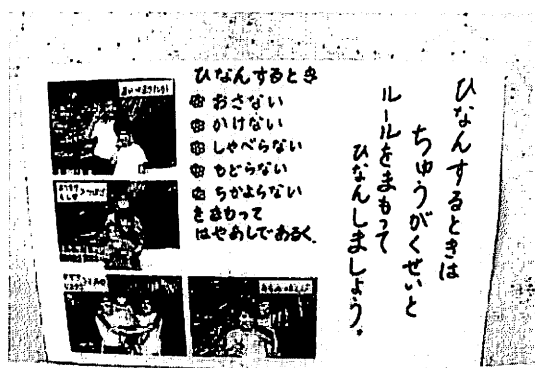 ひなんするときは
ちゅうがくせいと
ルールをまもって
ひなんしましょう。
ひなんするとき
おさない
かけない
しゃべらない
もどらない
ちかよらない
をまもって
はやあしであるく。